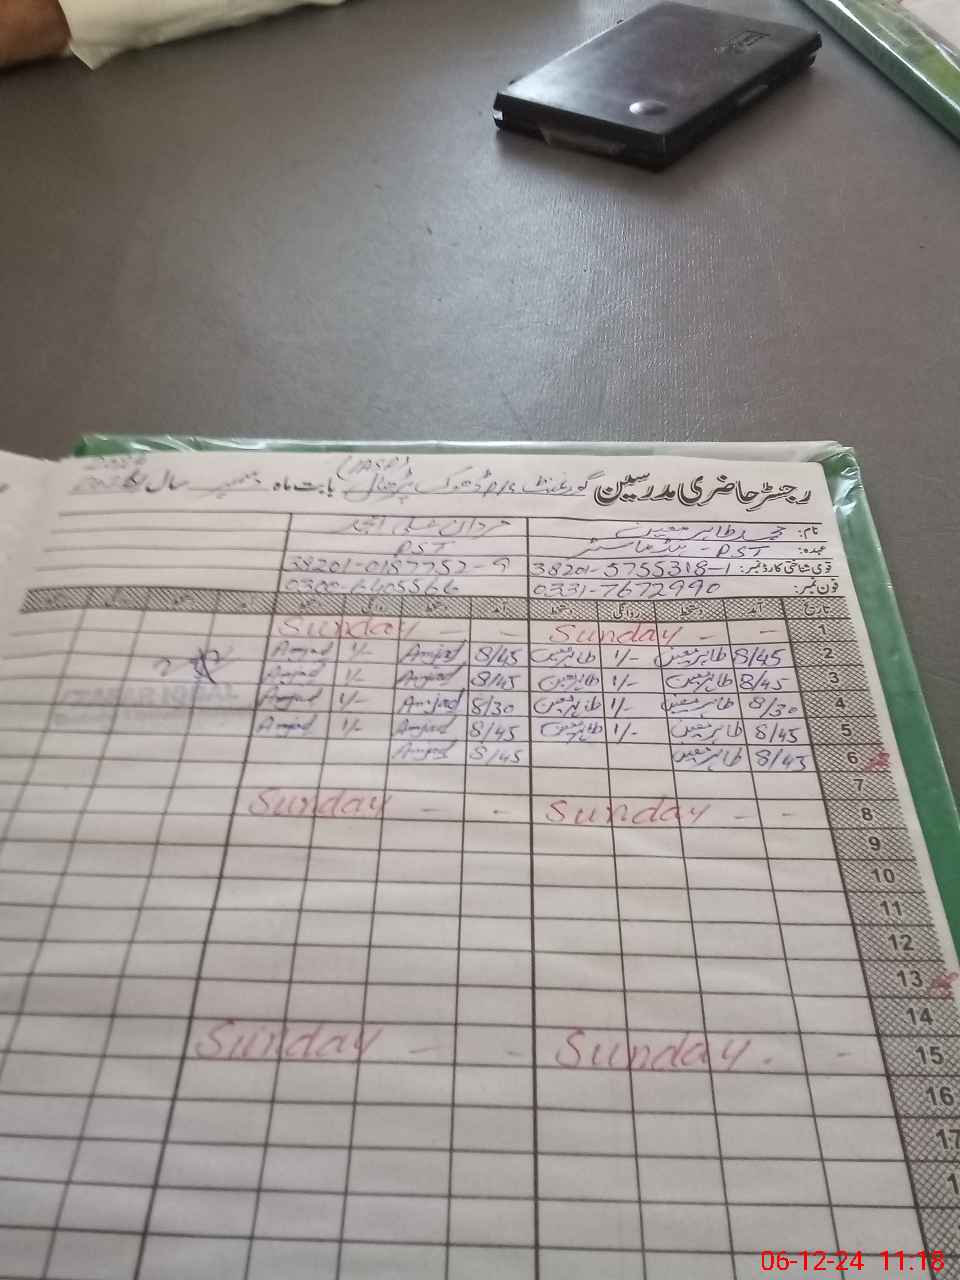 رجسٹر حاضری مدرسین گورنمنٹ P/S ڈھوک پڑھال (IASP) بابت ماہ دسمبر سال
نام: محمد طاہر معین مردان علی امجد
عہدہ: PST - ہیڈ ماسٹر PST
قومی شناختی کارڈ نمبر: 38201-5755318-1 38201-0187752-9
فون نمبر: 0331-7672990 0300-6405566
تاریخ آمد دستخط روانگی دستخط آمد دستخط روانگی دستخط
1 Sunday - - Sunday - -
2 8/45 طاہر معین 1/- طاہر معین 8/45 Amjad 1/- Amjad
3 8/45 طاہر معین 1/- طاہر معین 8/45 Amjad 1/- Amjad
4 8/30 طاہر معین 1/- طاہر معین 8/30 Amjad 1/- Amjad
5 8/45 طاہر معین 1/- طاہر معین 8/45 Amjad 1/- Amjad
6 8/45 طاہر معین 8/45 Amjad
7
8 Sunday - - Sunday - -
9
10
11
12
13
14
15 Sunday - - Sunday - -
16
17
ZAFAR IQBAL
06-12-24 11:18